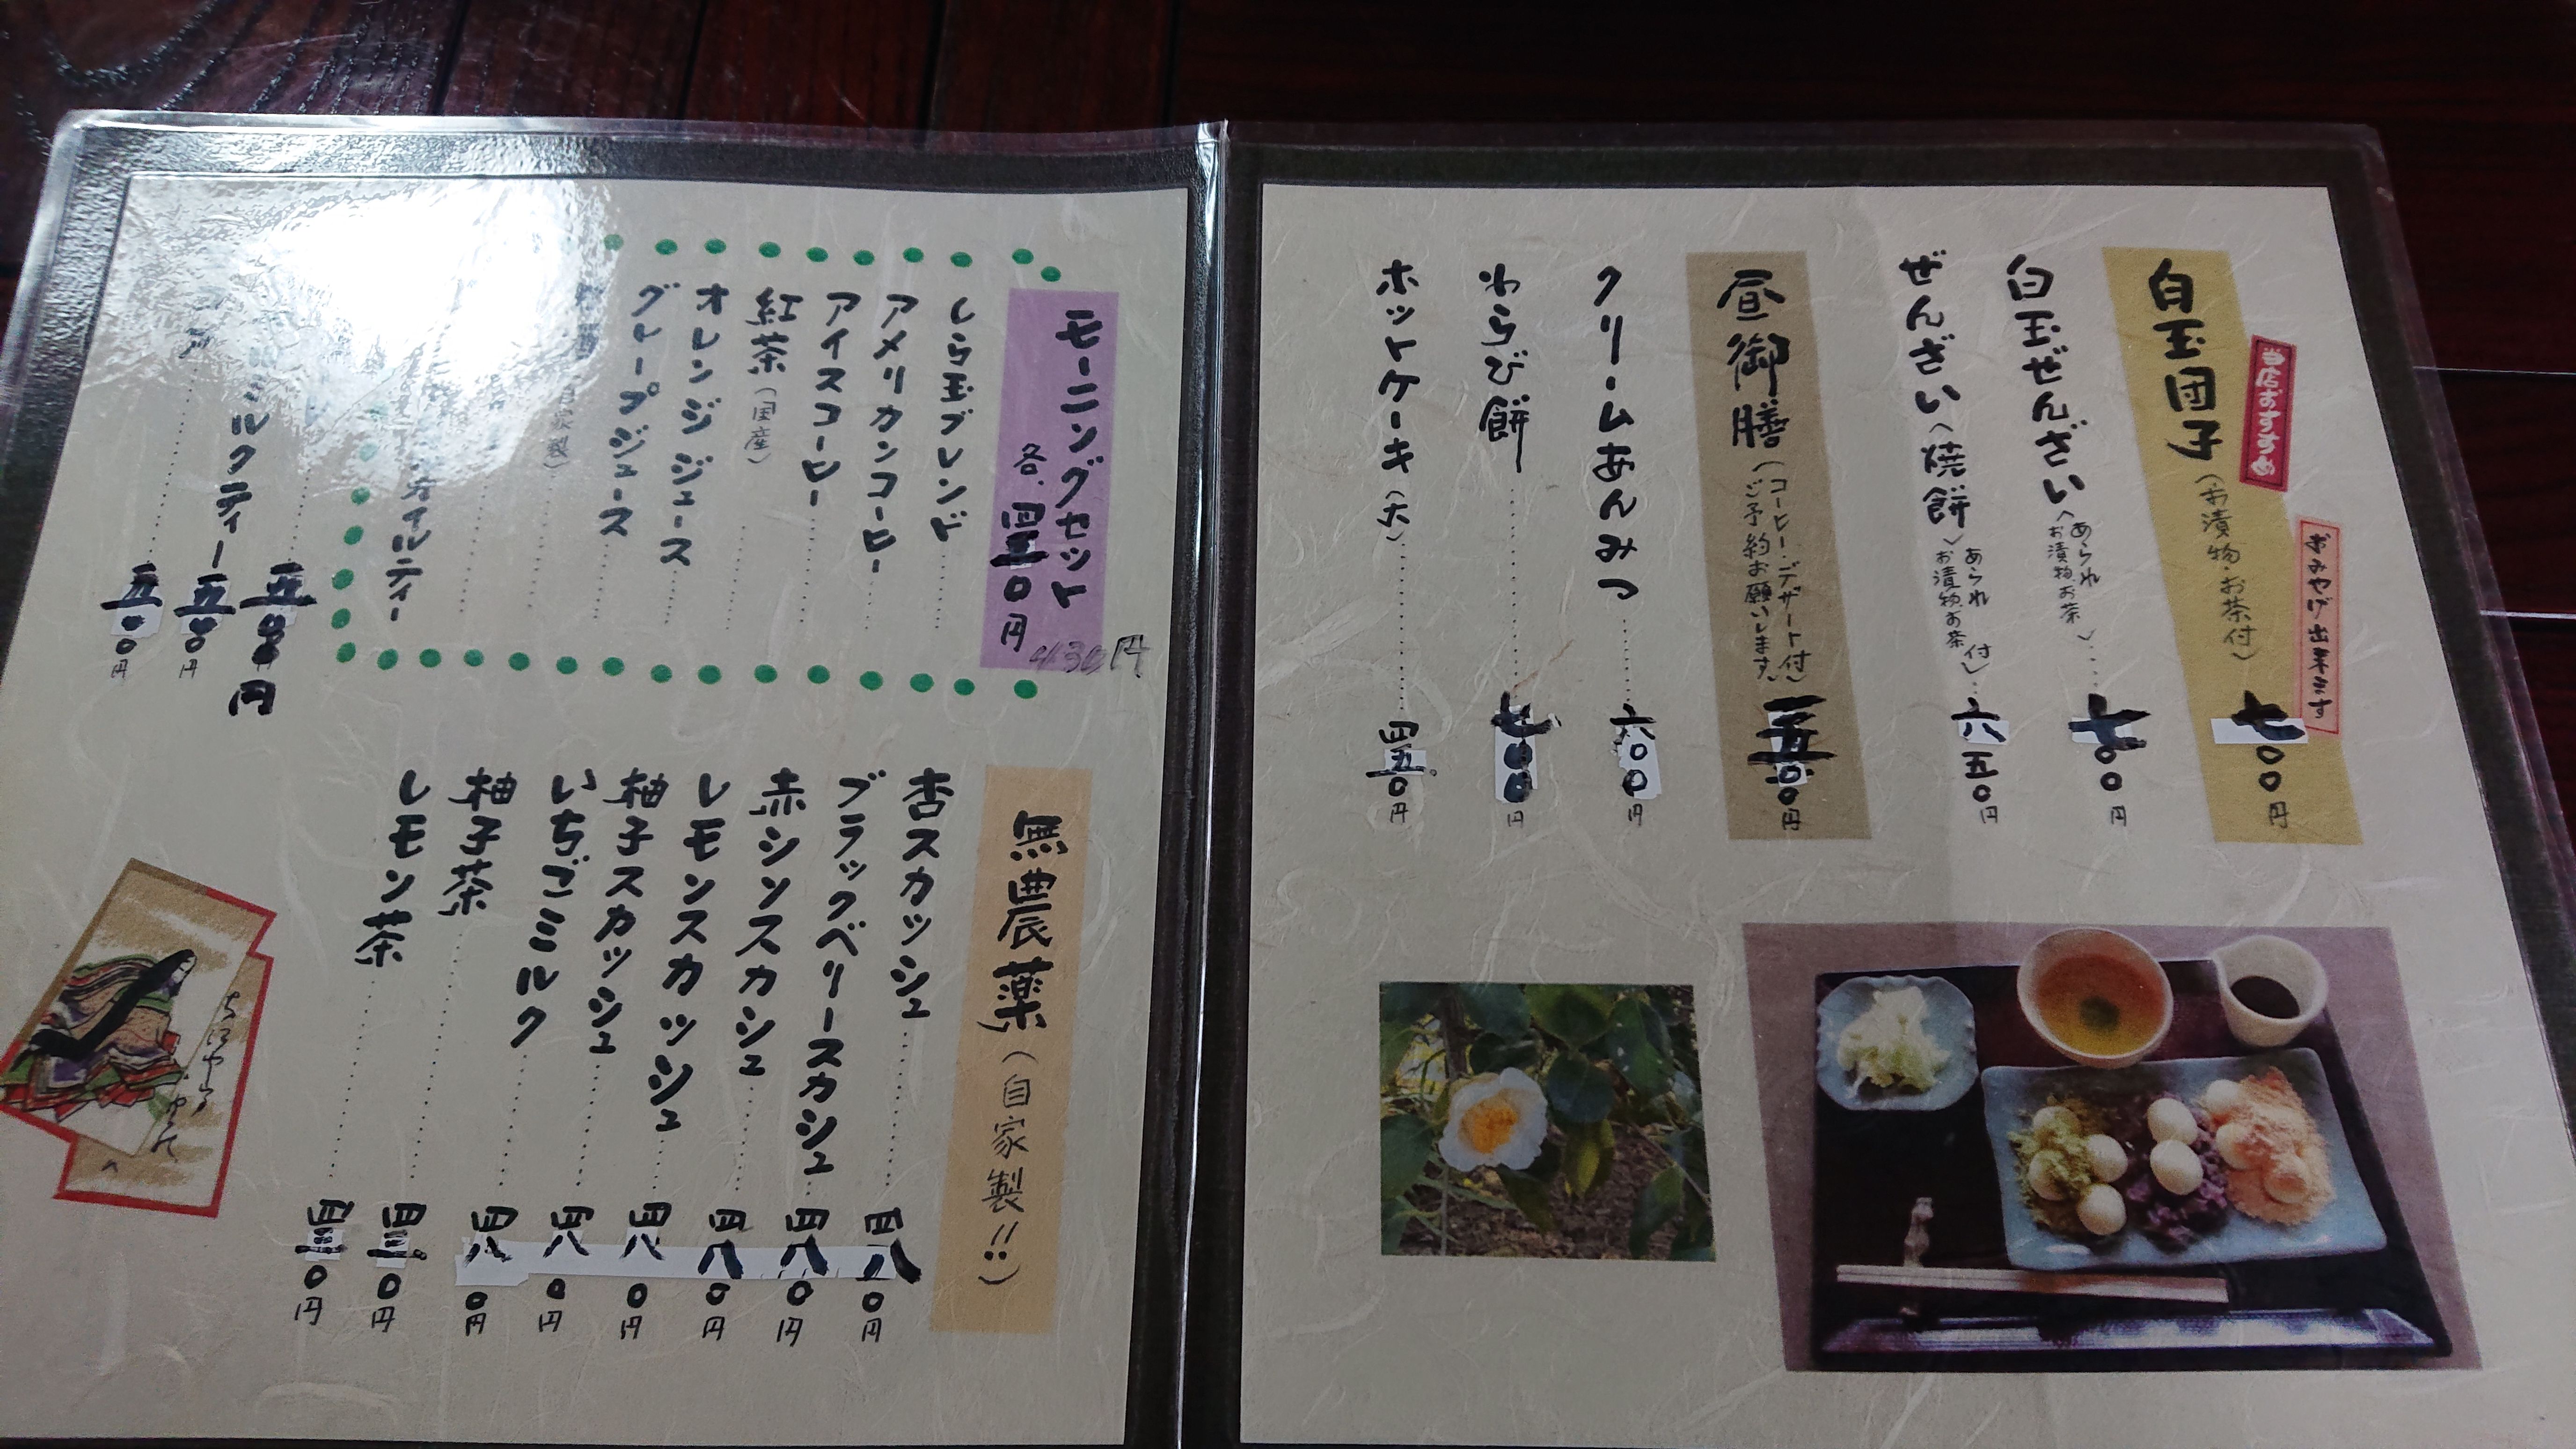 当店おすすめ
おみやげ出来ます
白玉団子(お漬物・お茶付)七〇〇円
白玉ぜんざい(あられ お漬物、お茶)七〇〇円
ぜんざい(焼餅)(あられ お漬物、お茶付)六五〇円
昼御膳(コーヒー、デザート付 ご予約お願いします。)円
クリームあんみつ六〇〇円
わらび餅七〇〇円
ホットケーキ四五〇円
モーニングセット
各、四三〇円
430円
しら玉ブレンド
アメリカンコーヒー
アイスコーヒー
紅茶(国産)
オレンジジュース
グレープジュース
自家製)
オイルティー
五〇〇円
ミルクティー五〇〇円
五〇〇円
無農薬(自家製!!)
杏スカッシュ四八〇円
ブラックベリースカシュ四八〇円
赤シソスカシュ四八〇円
レモンスカッシュ四八〇円
柚子スカッシュ四八〇円
いちごミルク四八〇円
柚子茶四三〇円
レモン茶四三〇円